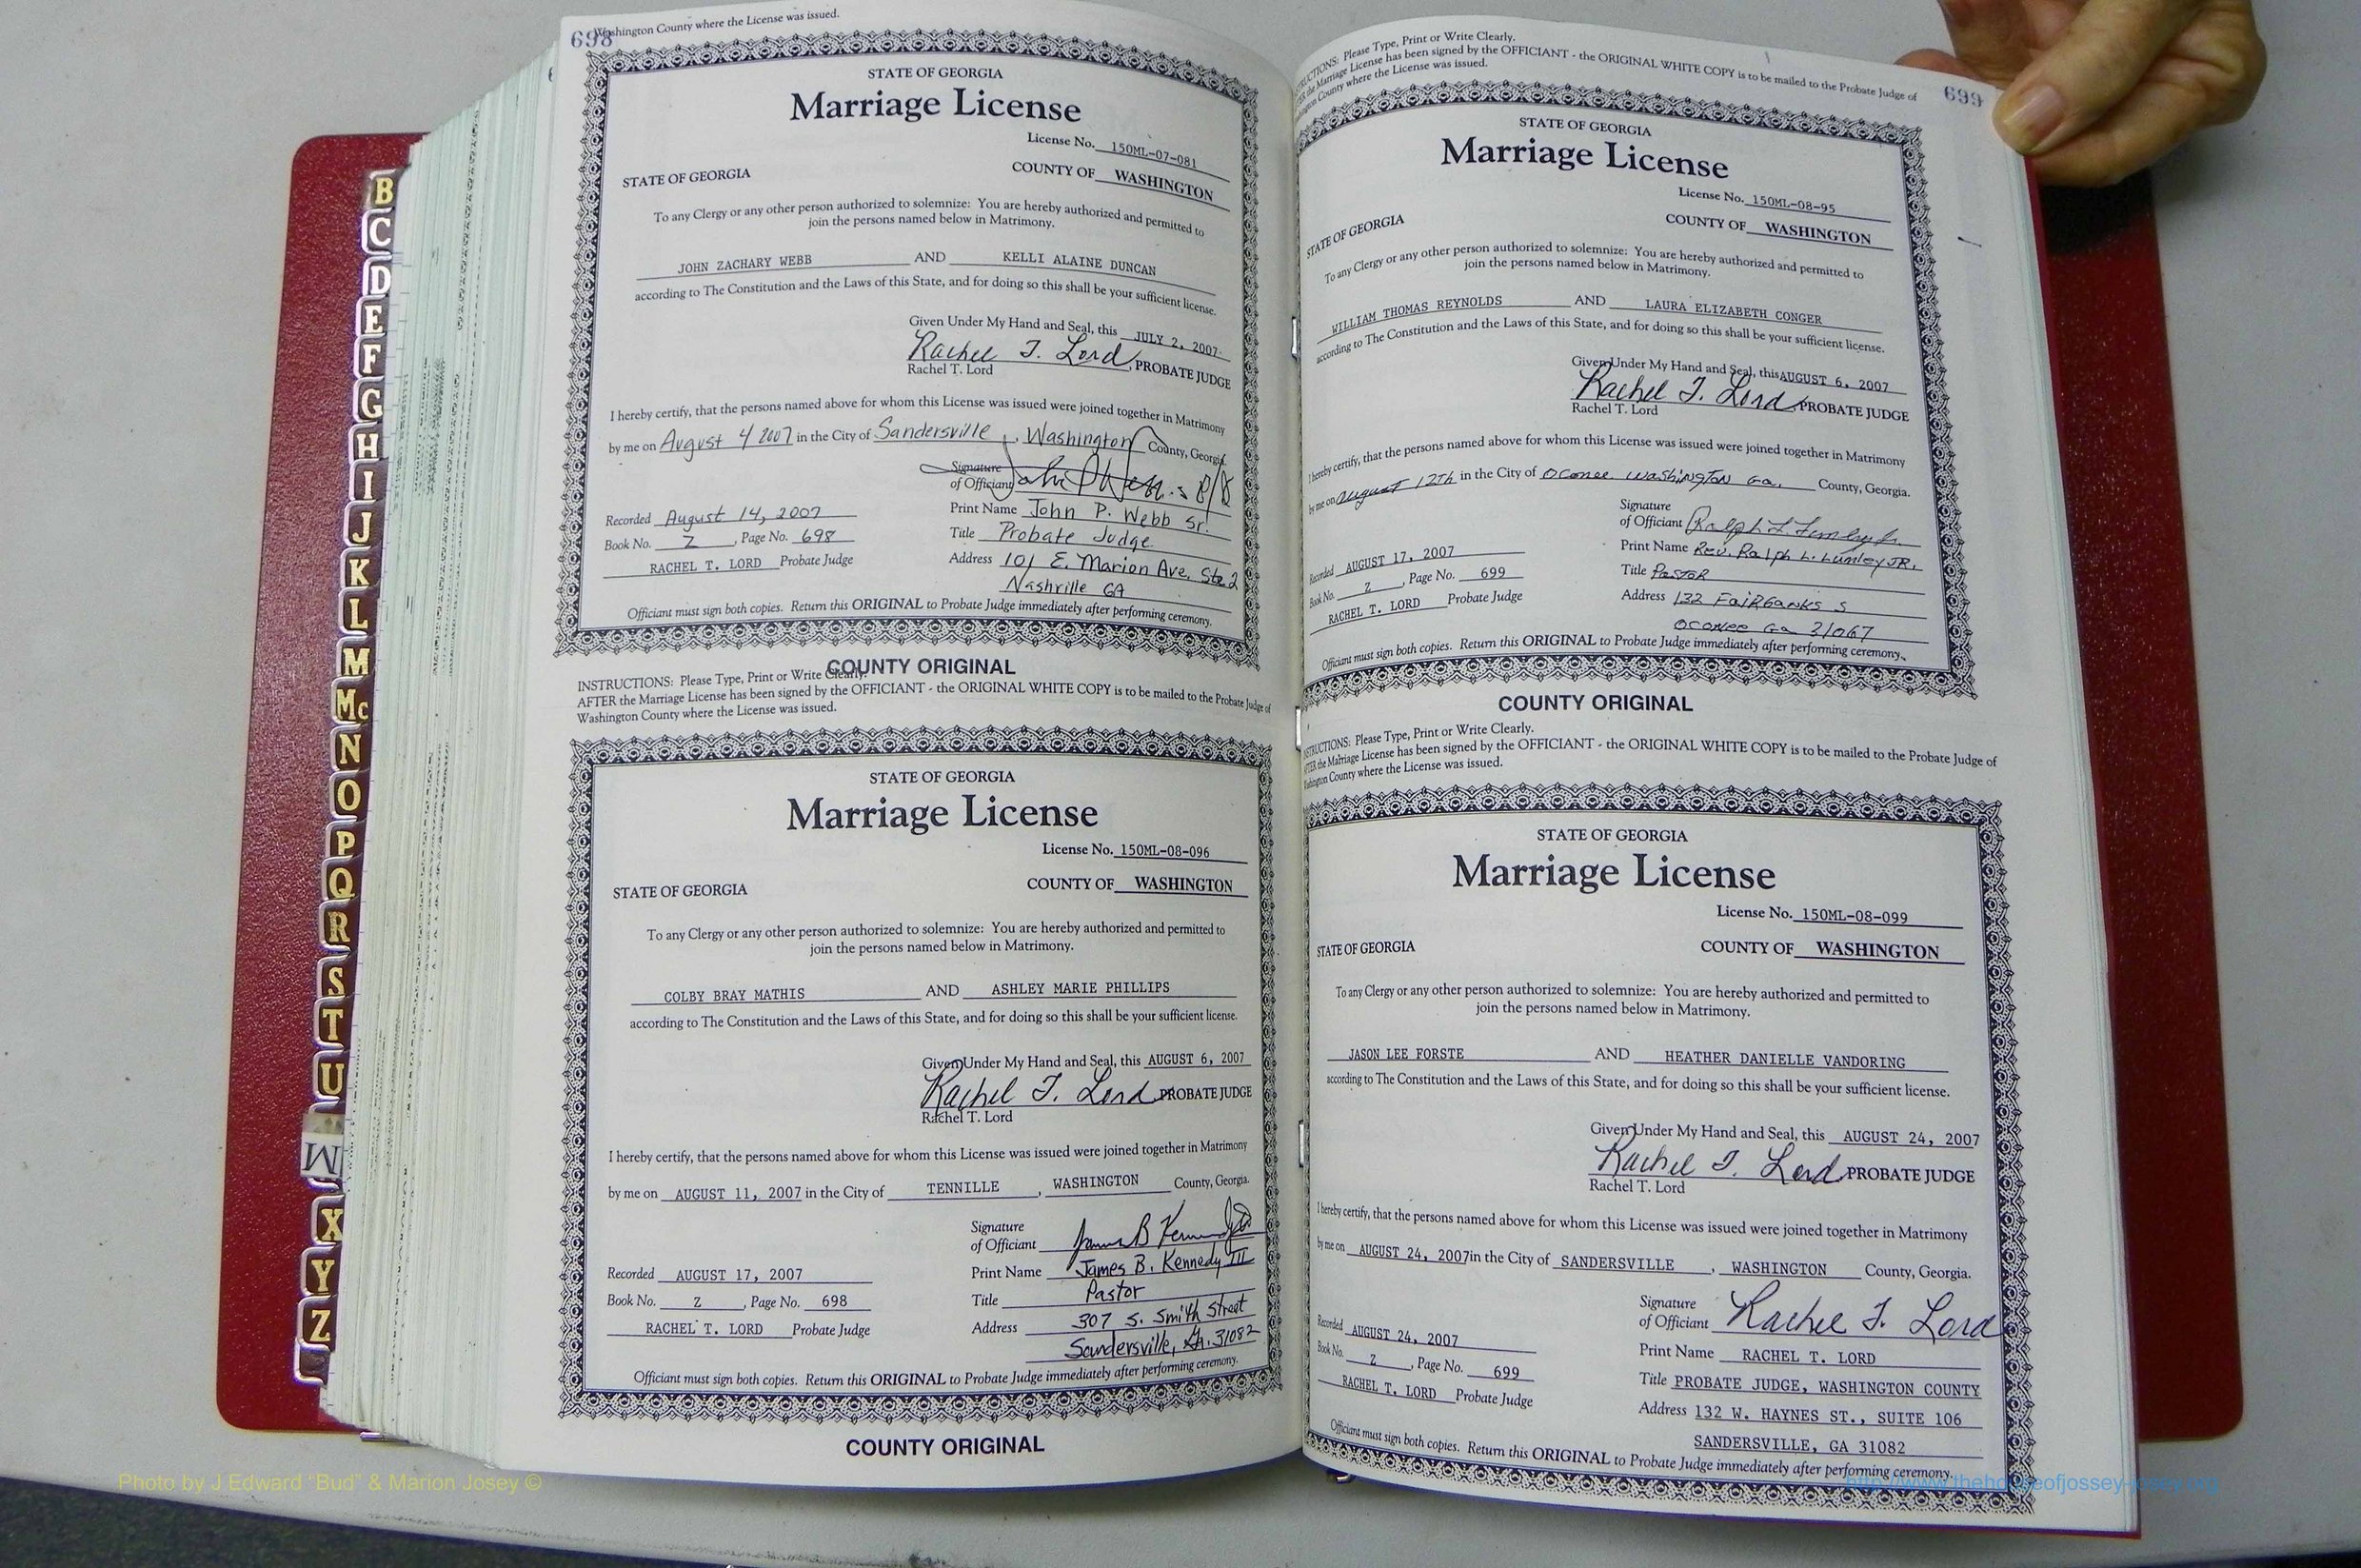 698
Washington County where the License was issued.
STATE OF GEORGIA
Marriage License
License No. 150ML-07-081
STATE OF GEORGIA
COUNTY OF WASHINGTON
To any Clergy or any other person authorized to solemnize: You are hereby authorized and permitted to
join the persons named below in Matrimony.
JOHN ZACHARY WEBB AND KELLI ALAINE DUNCAN
according to The Constitution and the Laws of this State, and for doing so this shall be your sufficient license.
Given Under My Hand and Seal, this JULY 2, 2007
Rachel T. Lord, PROBATE JUDGE
Rachel T. Lord
I hereby certify, that the persons named above for whom this License was issued were joined together in Matrimony
by me on August 4 2007 in the City of Sandersville, Washington County, Georgia.
Signature
of Officiant
Recorded August 14, 2007
Print Name John P. Webb Sr.
Book No. Z, Page No. 698
Title Probate Judge
RACHEL T. LORD Probate Judge
Address 101 E. Marion Ave, Ste 2
Nashville GA
Officiant must sign both copies. Return this ORIGINAL to Probate Judge immediately after performing ceremony.
COUNTY ORIGINAL
INSTRUCTIONS: Please Type, Print or Write Clearly.
AFTER the Marriage License has been signed by the OFFICIANT - the ORIGINAL WHITE COPY is to be mailed to the Probate Judge of
Washington County where the License was issued.
STATE OF GEORGIA
Marriage License
License No. 150ML-08-096
STATE OF GEORGIA
COUNTY OF WASHINGTON
To any Clergy or any other person authorized to solemnize: You are hereby authorized and permitted to
join the persons named below in Matrimony.
COLBY BRAY MATHIS AND ASHLEY MARIE PHILLIPS
according to The Constitution and the Laws of this State, and for doing so this shall be your sufficient license.
Given Under My Hand and Seal, this AUGUST 6, 2007
Rachel T. Lord PROBATE JUDGE
Rachel T. Lord
I hereby certify, that the persons named above for whom this License was issued were joined together in Matrimony
by me on AUGUST 11, 2007 in the City of TENNILLE, WASHINGTON County, Georgia.
Signature
of Officiant James B Kennedy III
Recorded AUGUST 17, 2007
Print Name James B. Kennedy III
Book No. Z, Page No. 698
Title Pastor
RACHEL T. LORD Probate Judge
Address 307 S. Smith Street
Sandersville, GA. 31082
Officiant must sign both copies. Return this ORIGINAL to Probate Judge immediately after performing ceremony.
COUNTY ORIGINAL
INSTRUCTIONS: Please Type, Print or Write Clearly.
AFTER the Marriage License has been signed by the OFFICIANT - the ORIGINAL WHITE COPY is to be mailed to the Probate Judge of
Washington County where the License was issued.
699
STATE OF GEORGIA
Marriage License
License No. 150ML-08-95
STATE OF GEORGIA
COUNTY OF WASHINGTON
To any Clergy or any other person authorized to solemnize: You are hereby authorized and permitted to
join the persons named below in Matrimony.
WILLIAM THOMAS REYNOLDS AND LAURA ELIZABETH CONGER
according to The Constitution and the Laws of this State, and for doing so this shall be your sufficient license.
Given Under My Hand and Seal, this AUGUST 6, 2007
Rachel T. Lord PROBATE JUDGE
Rachel T. Lord
I hereby certify, that the persons named above for whom this License was issued were joined together in Matrimony
by me on August 12th in the City of Oconee, Washington Ga. County, Georgia.
Signature
of Officiant
Recorded AUGUST 17, 2007
Print Name Rev. Ralph L. Lumley JR.
Book No. Z, Page No. 699
Title Pastor
RACHEL T. LORD Probate Judge
Address 132 Fairbanks S
Oconee Ga 31067
Officiant must sign both copies. Return this ORIGINAL to Probate Judge immediately after performing ceremony.
COUNTY ORIGINAL
INSTRUCTIONS: Please Type, Print or Write Clearly.
AFTER the Marriage License has been signed by the OFFICIANT - the ORIGINAL WHITE COPY is to be mailed to the Probate Judge of
Washington County where the License was issued.
STATE OF GEORGIA
Marriage License
License No. 150ML-08-099
STATE OF GEORGIA
COUNTY OF WASHINGTON
To any Clergy or any other person authorized to solemnize: You are hereby authorized and permitted to
join the persons named below in Matrimony.
JASON LEE FORSTE AND HEATHER DANIELLE VANDORING
according to The Constitution and the Laws of this State, and for doing so this shall be your sufficient license.
Given Under My Hand and Seal, this AUGUST 24, 2007
Rachel T. Lord PROBATE JUDGE
Rachel T. Lord
I hereby certify, that the persons named above for whom this License was issued were joined together in Matrimony
by me on AUGUST 24, 2007 in the City of SANDERSVILLE, WASHINGTON County, Georgia.
Signature
of Officiant Rachel T. Lord
Recorded AUGUST 24, 2007
Print Name RACHEL T. LORD
Book No. Z, Page No. 699
Title PROBATE JUDGE, WASHINGTON COUNTY
RACHEL T. LORD Probate Judge
Address 132 W. HAYNES ST., SUITE 106
SANDERSVILLE, GA 31082
Officiant must sign both copies. Return this ORIGINAL to Probate Judge immediately after performing ceremony.
B
C
D
E
F
G
H
I
J
K
L
M
Mc
N
O
P
Q
R
S
T
U
W
X
Y
Z
Photo by J Edward "Bud" & Marion Josey ©
http://www.thehouseofjossey-josey.org